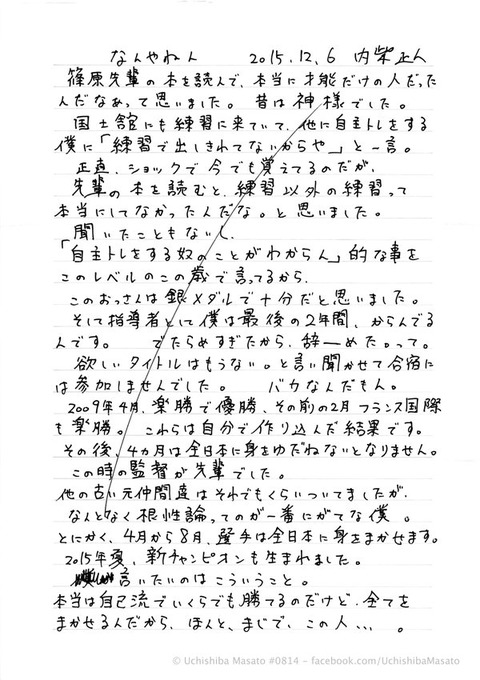 なんやねん　2015.12.6　内柴正人
篠原先輩の本を読んで、本当に才能だけの人だった
んだなあって思いました。昔は神様でした。
国士舘にも練習に来ていて、他に自主トレをする
僕に「練習で出しきれてないからや」と一言。
正直、ショックで今でも覚えてるのだが、
先輩の本を読むと、練習以外の練習って
本当にしてなかったんだな。と思いました。
聞いたこともないし、
「自主トレをする奴のことがわからん」的な事を
このレベルのこの歳で言ってるから、
このおっさんは銀メダルで十分だと思いました。
そして指導者として僕は最後の2年間、からんでる
んです。でたらめすぎたから、辞ーめた。って。
欲しいタイトルはもうない。と言い聞かせて合宿に
は参加しませんでした。バカなんだもん。
2009年4月、楽勝で優勝、その前の2月フランス国際
も楽勝。これらは自分で作り込んだ結果です。
その後、4ヵ月は全日本に身をゆだねないとなりません。
この時の監督が先輩でした。
他の古い元仲間達はそれでもくらいついてましたが、
なんとなく根性論ってのが一番にがてな僕。
とにかく、4月から8月、選手は全日本に身をまかせます。
2015年夏、新チャンピオンも生まれました。
言いたいのはこういうこと。
本当は自己流でいくらでも勝てるのだけど、全てを
まかせるんだから、ほんと、まじで、この人、、、。
© Uchishiba Masato #0814 - facebook.com/UchishibaMasato